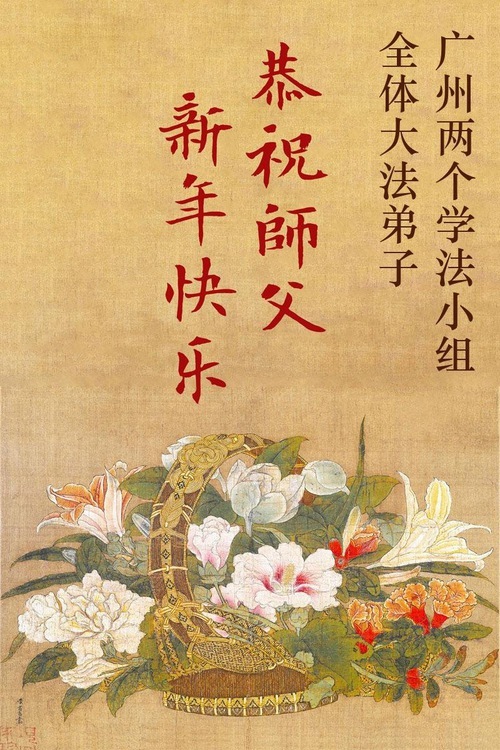 广州两个学法小组
全体大法弟子
恭祝師父
新年快乐